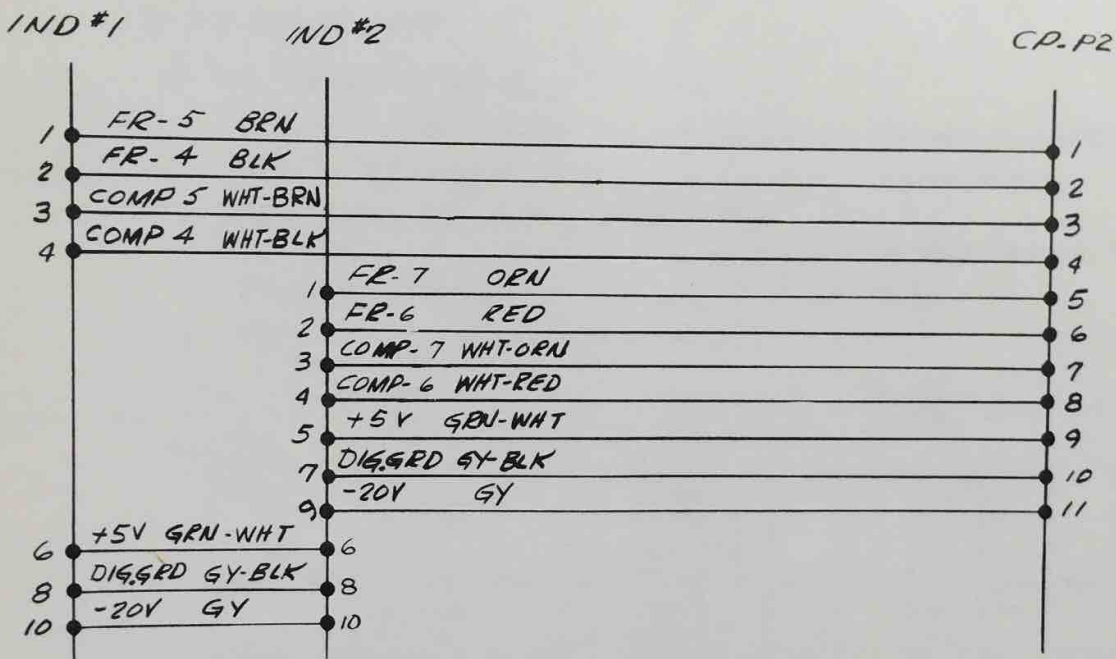 IND #1 IND #2 CP-P2
1 FR-5 BRN 1
2 FR-4 BLK 2
3 COMP 5 WHT-BRN 3
4 COMP 4 WHT-BLK 4
1 FR-7 ORN 5
2 FR-6 RED 6
3 COMP-7 WHT-ORN 7
4 COMP-6 WHT-RED 8
5 +5V GRN-WHT 9
7 DIG.GRD GY-BLK 10
9 -20V GY 11
6 +5V GRN-WHT 6
8 DIG.GRD GY-BLK 8
10 -20V GY 10